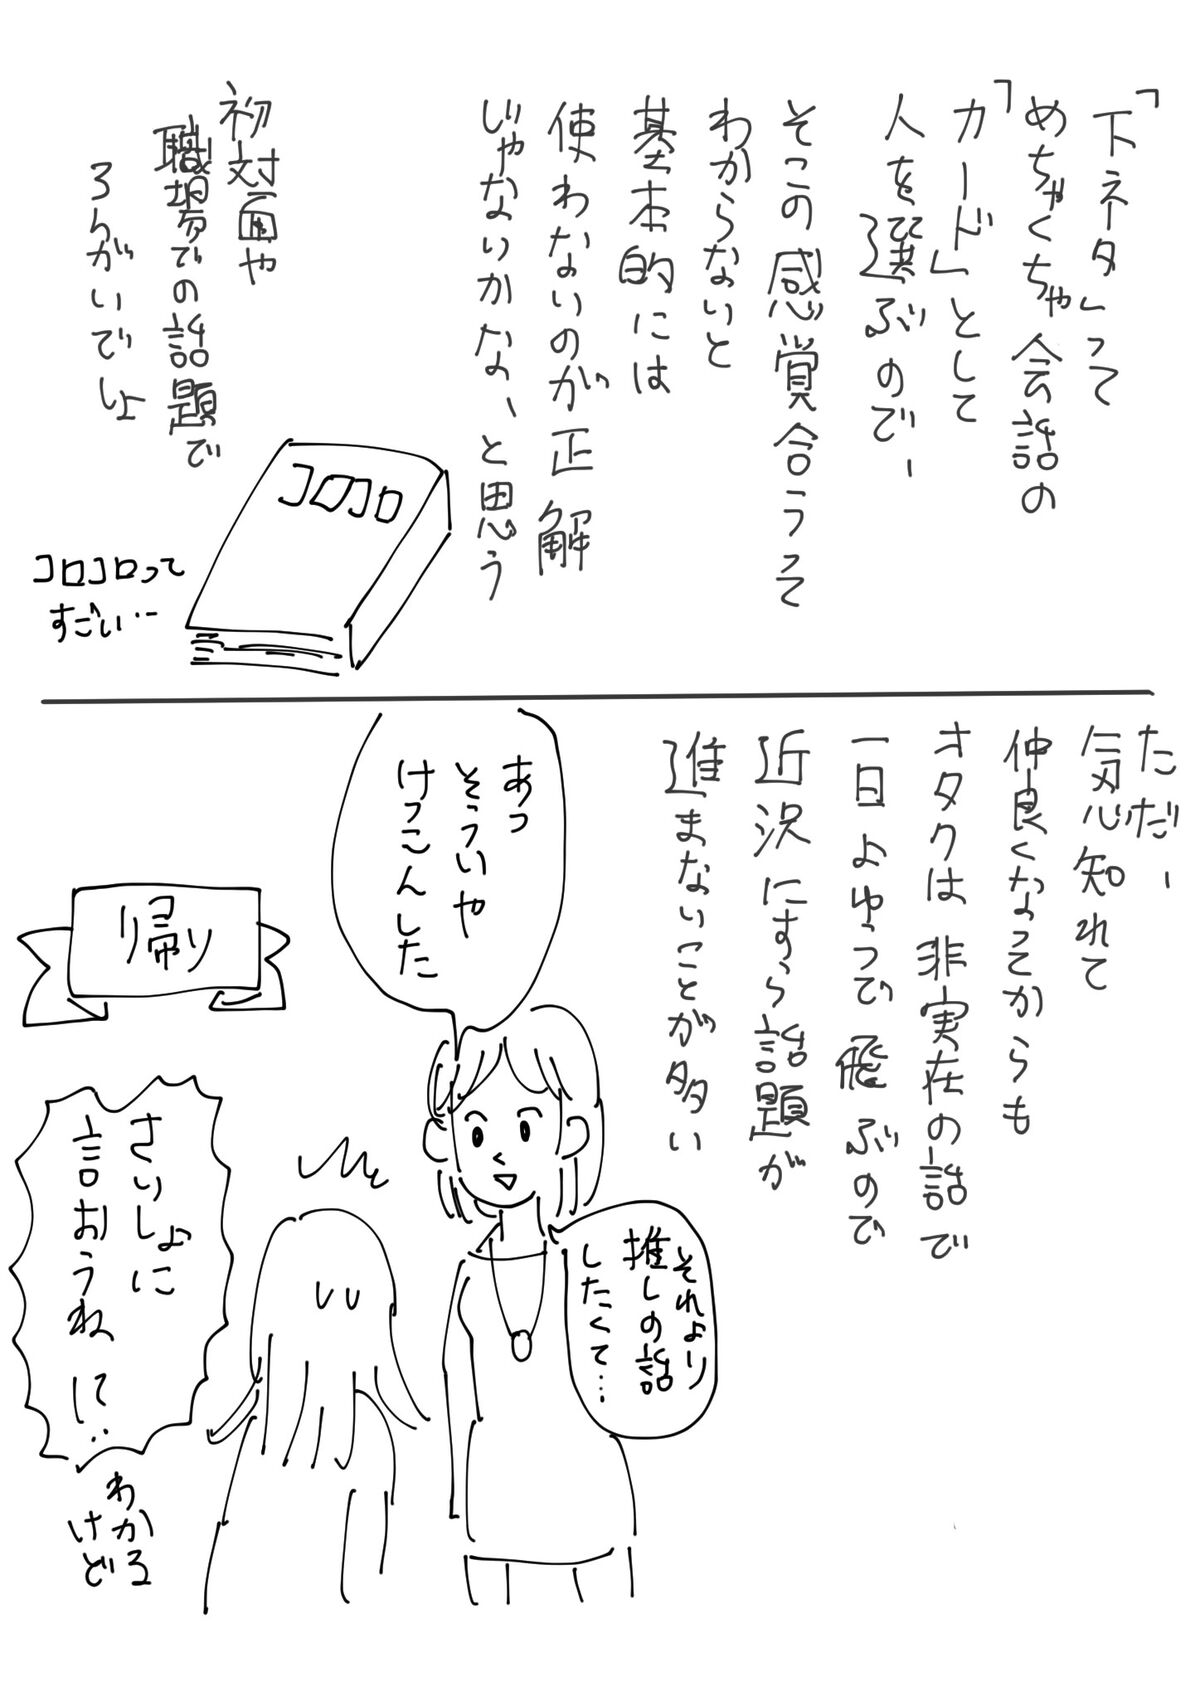 「下ネタ」って
めちゃくちゃ会話の
「カード」として
人を選ぶので、
そこの感覚合うって
わからないと
基本的には
使わないのが正解
じゃないかな、と思う
初対面や
職場での話題で
ろんがいでしょ
コロコロ
コロコロって
すごい…
ただ、
気心知れて
仲良くなってからも
オタクは非実在の話で
一日よゆうで飛ぶので
近況にすら話題が
進まないことが多い
あっ
そういや
けっこんした
帰り
それより
推しの話
したくて…
さいしょに
言おうね!?
わかる
けど